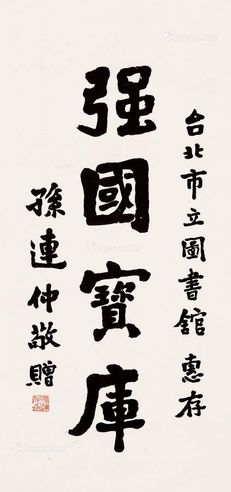 台北市立圖書館惠存
强國寶庫
孫連仲敬贈